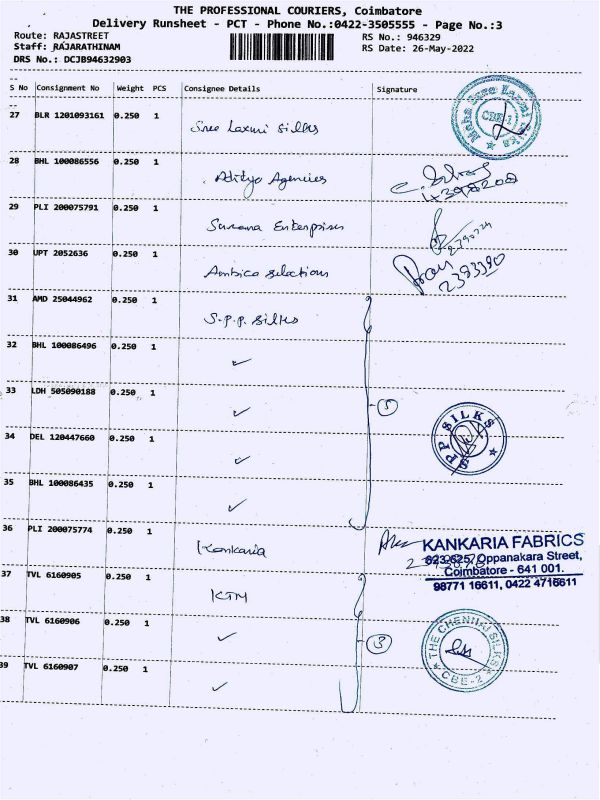 THE PROFESSIONAL COURIERS, Coimbatore
Delivery Runsheet - PCT - Phone No.:0422-3505555 - Page No.:3
Route: RAJASTREET
Staff: RAJARATHINAM
DRS No.: DCJB94632903
RS No.: 946329
RS Date: 26-May-2022
S No Consignment No Weight PCS Consignee Details Signature
27 BLR 1201093161 0.250 1 Sree Laxmi Silks
Maha Sree Laxmi Silks CBE-1
28 BHL 100086556 0.250 1 Aditya Agencies
29 PLI 200075791 0.250 1 Suvana Enterprises
30 UPT 2052636 0.250 1 Ambica Selections 2383390
31 AMD 25044962 0.250 1 S.P.P. Silks
32 BHL 100086496 0.250 1 ✓
33 LDH 505090188 0.250 1 ✓ 5
34 DEL 120447660 0.250 1 ✓
SPP SILKS
35 BHL 100086435 0.250 1 ✓
36 PLI 200075774 0.250 1 Kankaria
KANKARIA FABRICS
623-625, Oppanakara Street,
Coimbatore - 641 001.
98771 16611, 0422 4716611
37 TVL 6160905 0.250 1 KTM
38 TVL 6160906 0.250 1 ✓ 3
THE CHENNAI SILKS CBE-2
39 TVL 6160907 0.250 1 ✓